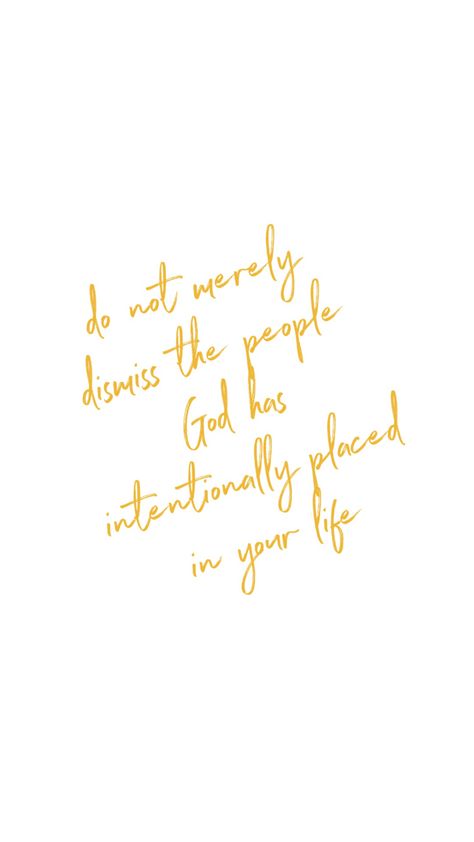 do not merely
dismiss the people
God has
intentionally placed
in your life